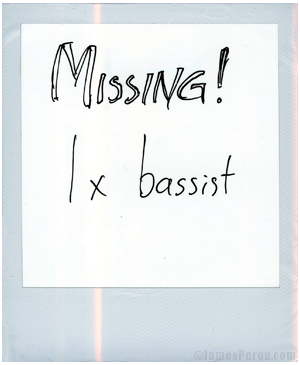 MISSING!
1 x bassist
©JamesPerou.com